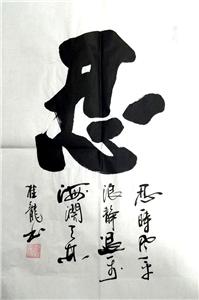 忍
忍時風平
浪靜退步
海闊天空
桂龍书